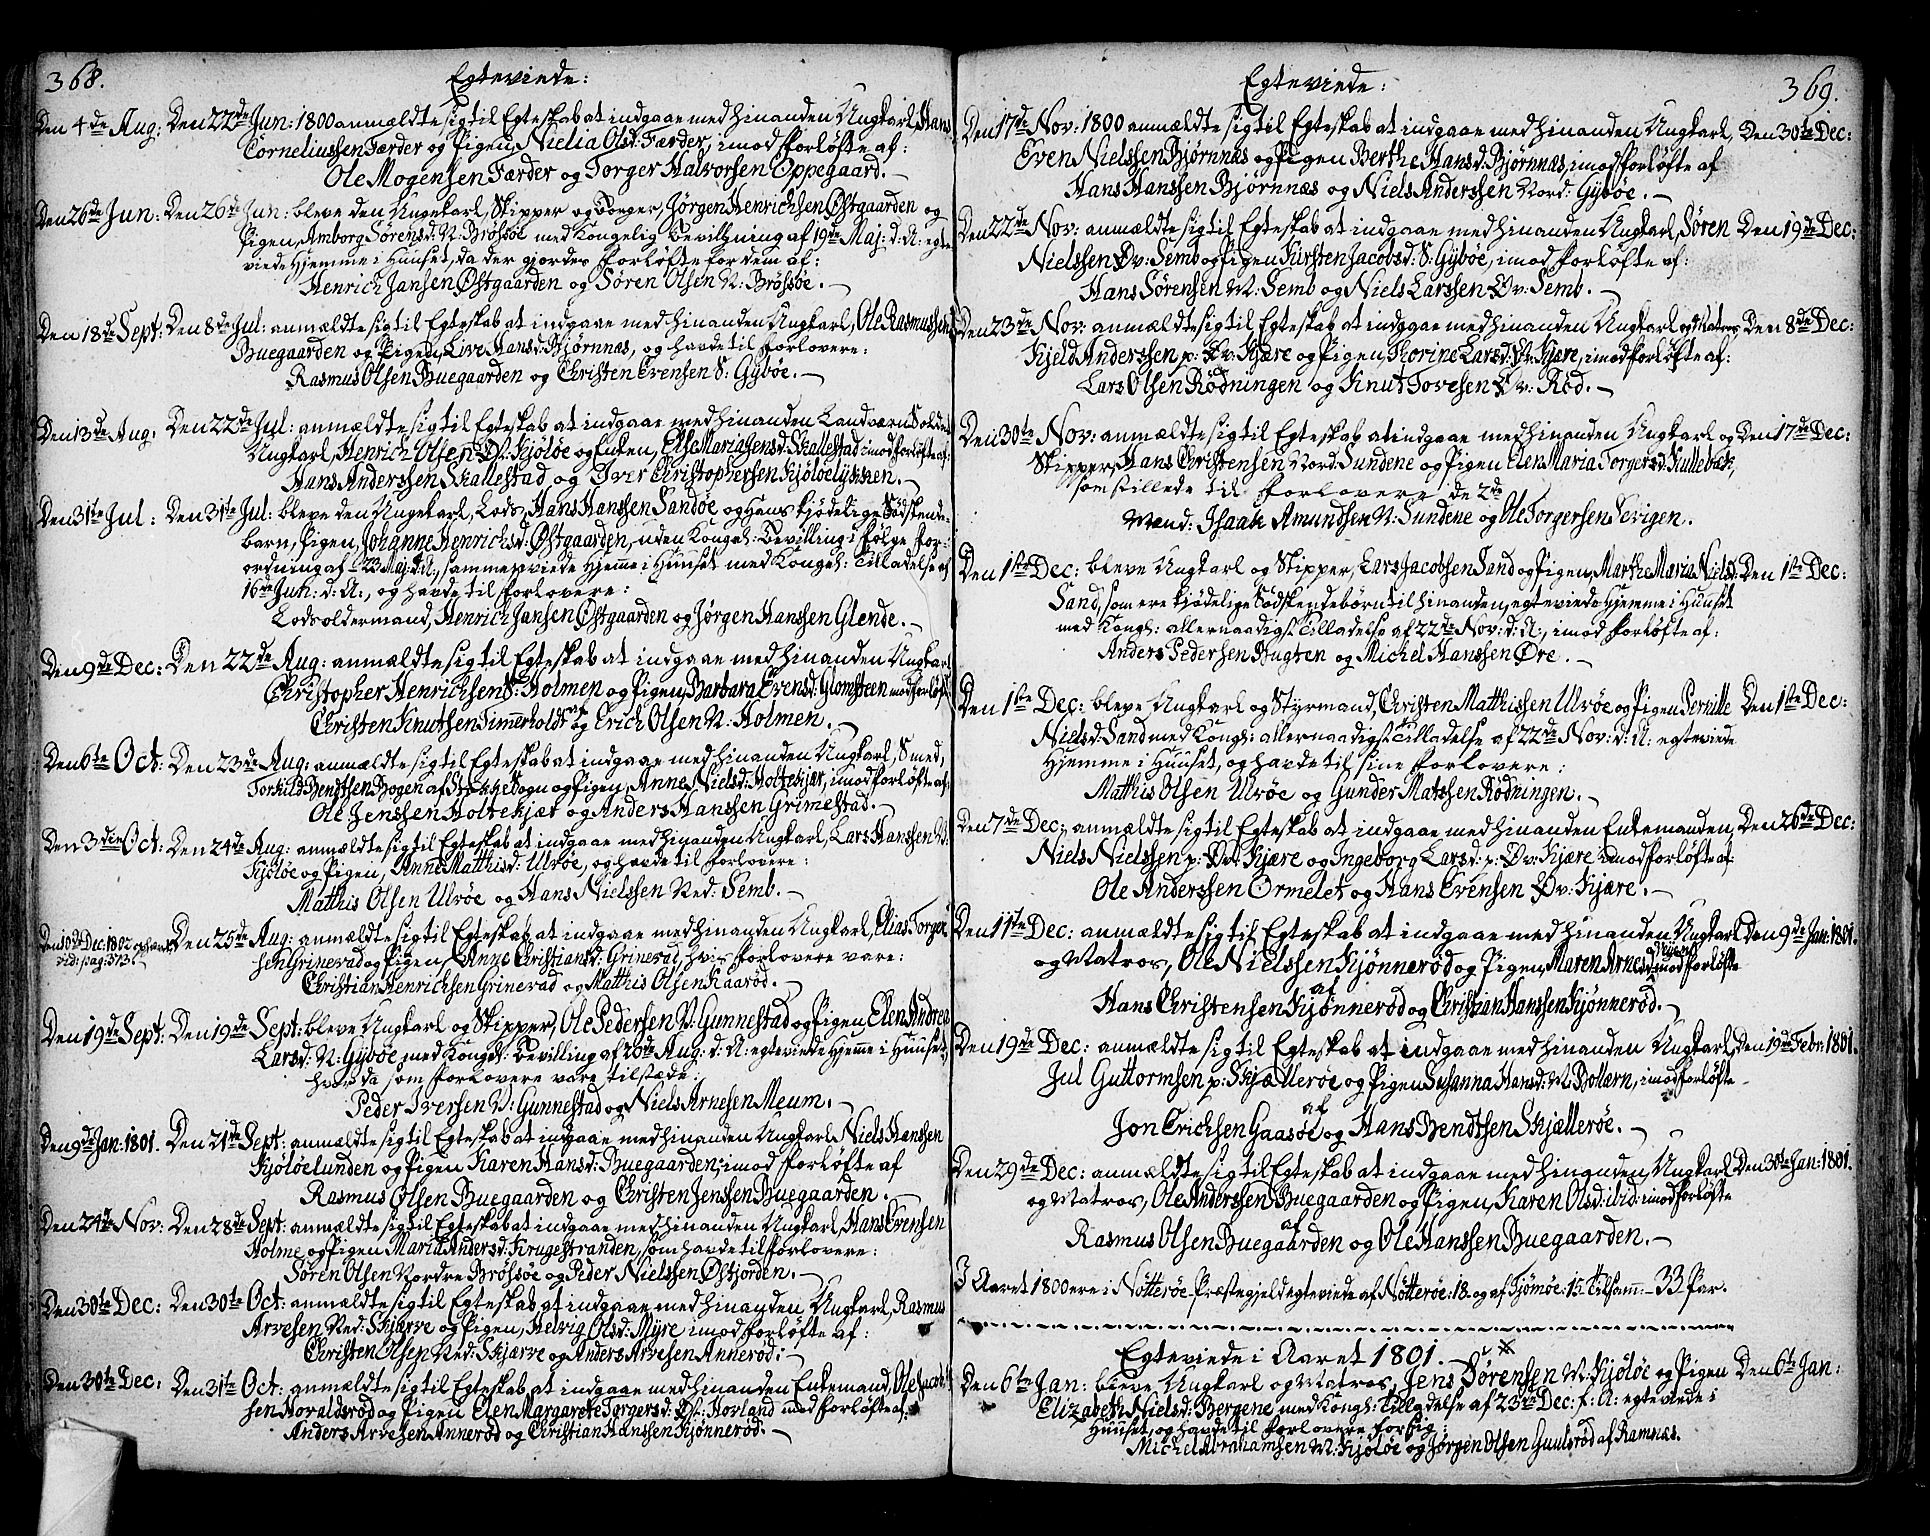 368.
Egteviede:
Den 4de Aug: Den 22de Jun: 1800 anmældte sig til Egteskab at indgaae med hinanden Ungkarl, Hans
Corneliussen Færder og Pigen, Nielia Olsd: Færder, imod Forløfte af:
Ole Mogensen Færder og Torger Halvorsen Oppegaard. —
Den 26de Jun: Den 26de Jun: bleve den Ungekarl, Skipper og Borger, Jørgen Henrichsen Østgaarden og
Pigen, Amborg Sørensd: N: Brøssøe med Kongelig Bevillning af 19de Maj: d: A: egte
viede Hjemme i Huuset, da der gjordes Forløfte for dem af:
Henrich Jansen Østgaarden og Søren Olsen N: Brøssøe. —
Den 18de Sept: Den 8de Jul: anmældte sig til Egteskab at indgaae med hinanden Ungkarl, Ole Rasmussen
Buegaarden og Pigen, Live Hansd: Bjørnnæs, og havde til Forlovere:
Rasmus Olsen Buegaarden og Christen Evensen S: Gybøe. —
Den 13de Aug: Den 22de Jul: anmældte sig til Egteskab at indgaae med hinanden Landværn Soldat
Ungkarl, Henrich Olsen Øst: Kjøløe og Enken, Else Maria Jensd: Skallestad imod Forløfte af:
Hans Anderssen Skallestad og Iver Christophersen Kjøløelykken. —
Den 31te Jul: Den 31te Jul: bleve den Ungekarl, Lods, Hans Hanssen Sandøe og Hans kjødelige Södskende-
barn, Pigen, Johanne Henrichsd: Østgaarden, uden Kongel: Bevilling i Følge For-
ordning af 23 Maj: d: A:, sammenviede Hjemme i Huuset med Kongel: Tilladelse af
16de Jun: d: A:, og havde til Forlovere:
Lodsoldermand, Henrich Jansen Østgaarden og Jørgen Hanssen Glende. —
Den 9de Dec: Den 22de Aug: anmældte sig til Egteskab at indgaae med hinanden Ungkarl
Christopher Henrichsen S: Holmen og Pigen, Barbara Evensd: Glomsteen imod Forløft
af
Christen Knutsen Timmerholdt og Erich Olsen N: Holmen. —
Den 6te Oct: Den 23de Aug: anmældte sig til Egteskab at indgaae med hinanden Ungkarl, Smed,
Torkild Bendtsen Bogen af Stokke Sogn og Pigen, Anne Nielsd: Holtekjær, imod Forløfte af:
Ole Jenssen Holtekjær og Anders Hanssen Grimestad. —
Den 3die Oct: Den 24de Aug: anmældte sig til Egteskab at indgaae med hinanden Ungkarl, Lars Hanssen N:
Kjøløe og Pigen, Anne Matthisd: Ulvøe, og havde til Forlovere:
Matthis Olsen Ulvøe og Hans Nielssen Ned: Semb. —
Den 10de Dec: 1802
vid: pag: 373. —
Den 25de Aug: anmældte sig til Egteskab at indgaae med hinanden Ungkarl, Elias Torger-
sen Grinerød og Pigen, Anne Christiansd: Grinerød, hvis Forlovere vare:
Christian Henrichsen Grinerød og Matthis Olsen Kaarød. —
Den 19de Sept: Den 19de Sept: bleve Ungkarl og Skipper, Ole Pedersen N: Gunnestad og Pigen, Elen Andrea
Larsd: N: Gybøe med Kongel: Bevilling af 20de Aug: d: A: egteviede Hjemme i Huuset,
hvor da som Forlovere vare tilstæde:
Peder Iversen N: Gunnestad og Niels Arnesen Meum. —
Den 9de Jan: 1801. Den 21de Sept: anmældte sig til Egteskab at indgaae med hinanden Ungkarl, Niels Hanssen
Kjøløelunden og Pigen Karen Hansd: Buegaarden; imod Forløfte af
Rasmus Olsen Buegaarden og Christen Jenssen Buegaarden. —
Den 24de Nov: Den 28de Sept: anmældte sig til Egteskab at indgaae med hinanden Ungkarl, Hans Evensen
Holme og Pigen Maria Andersd: Krugestranden, som havde til Forlovere:
Søren Olsen Nordre Brøssøe og Peder Nielssen Østjorden. —
Den 30te Dec: Den 30te Oct: anmældte sig til Egteskab at indgaae med hinanden Ungkarl, Rasmus
Arvesen Ned: Skjærve og Pigen, Helvig Olsd: Myre imod Forløfte af:
Christen Olsen Ned: Skjærve og Anders Arvesen Annerød: —
Den 30te Dec: Den 31te Oct: anmældte sig til Egteskab at indgaae med hinanden Enkemand, Ole Jacob-
sen Horaldsrød og Pigen Elen Margarete Torgersd: Øst: Horland imod Forløfte af:
Anders Arvesen Annerød og Christian Hanssen Kjønnerød. —
369.
Egteviede:
Den 17de Nov: 1800 anmældte sig til Egteskab at indgaae med hinanden Ungkarl, Den 30te Dec:
Even Nielssen Bjørnnæs og Pigen Berthe Hansd: Bjørnnæs, imod Forløfte af
Hans Hanssen Bjørnnæs og Niels Anderssen Nord: Gybøe. —
Den 22de Nov: anmældte sig til Egteskab at indgaae med hinanden Ungkarl, Søren Den 19de Dec:
Nielssen Øv: Semb og Pigen Kirsten Jacobsd: S: Gybøe, imod Forløfte af:
Hans Sørensen N: Semb og Niels Larssen Øv: Semb. —
Den 23de Nov: anmældte sig til Egteskab at indgaae med hinanden Ungkarl og Matros, Den 8de Dec:
Kjeld Anderssen p: Øv: Kjære og Pigen, Thorine Larsd: Øv: Kjære, imod Forløfte af:
Lars Olsen Rødningen og Knut Tovesen Øv: Rød. —
Den 30te Nov: anmældte sig til Egteskab at indgaae med hinanden Ungkarl og Den 17de Dec:
Skipper, Hans Christensen Nord: Sundene og Pigen Elen Maria Torgersd: Hullebæk,
som stillede til Forlovere de 2de
Mænd: Isaak Amundsen N: Sundene og Ole Torgersen Sevigen.
Den 1ste Dec: bleve Ungkarl og Skipper, Lars Jacobsen Sand og Pigen, Marthe Maria Nielsd: Den 1ste Dec:
Sand, som ere kjødelige Södskendebörn til hinanden, egteviede Hjemme i Huuset
med Kongl: allernaadigst Tilladelse af 22de Nov: d: A:, imod Forløfte af:
Anders Pedersen Bugten og Michel Hanssen Øre. —
Den 1ste Dec: bleve Ungkarl og Styrmand, Christen Matthissen Ulvøe og Pigen Pernille Den 1ste Dec:
Nielsd: Sand med Kongl: allernaadigst Tilladelse af 22de Nov: d: A: egteviede
Hjemme i Huuset, og havde til sine Forlovere:
Matthis Olsen Ulvøe og Gunder Matssen Rødningen. —
Den 7de Dec: anmældte sig til Egteskab at indgaae med hinanden Enkemanden, Den 26de Dec:
Niels Nielssen p: Øv: Kjære og Ingeborg Larsd: p: Øv: Kjære imod Forløfte af:
Ole Anderssen Ormelet og Hans Evensen Øv: Kjære. —
Den 11te Dec: anmældte sig til Egteskab at indgaae med hinanden Ungkarl Den 9de Jan: 1801.
og Matros, Ole Nielssen Kjønnerød og Pigen, Maren Arnesd: imod Forløfte
af
Hans Christensen Kjønnerød og Christian Hanssen Kjønnerød. —
Den 19de Dec: anmældte sig til Egteskab at indgaae med hinanden Ungkarl, Den 19de Febr: 1801.
Jul Guttormsen p: Skjællerøe og Pigen Susanna Hansd: N: Bollærn, imod Forløfte
af
Jon Erichsen Gaasøe og Hans Bendtsen Skjællerøe. —
Den 29de Dec: anmældte sig til Egteskab at indgaae med hinanden Ungkarl Den 30te Jan: 1801.
og Matros, Ole Anderssen Buegaarden og Pigen, Karen Olsd: ibid: imod Forløfte
af
Rasmus Olsen Buegaarden og Ole Hanssen Buegaarden. —
I Aaret 1800 ere i Nøtterøe Prestegjeld egteviede af Nøtterøe: 18. og af Tjømøe: 15. Tilsam: — 33 Par.
Egteviede i Aaret 1801.
Den 6te Jan: bleve Ungkarl og Matros, Jens Sørensen N: Kjøløe og Pigen Den 6te Jan:
Elizabeth Nielsd: Bergene, med Kongl: Tilladelse af 23de Dec: f: A: egteviede i
Huuset, og havde til Forlovere for sig:
Michel Abrahamsen N: Kjøløe og Jørgen Olsen Guulsrød af Ramnæs.